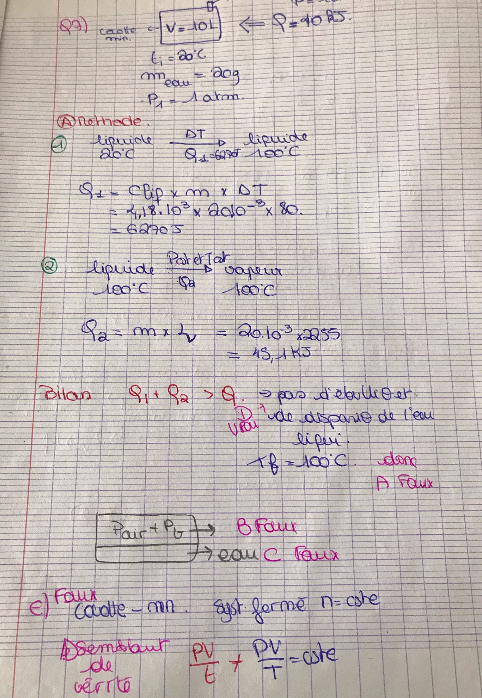 Q7) cocotte min. V = 10L ⇐ Q = 40 kJ.
ti = 20°C
meau = 20g
P1 = 1 atm.
A Methode.
1 liquide 20°C DT → Q1 = 6270J liquide 100°C
Q1 = Cliq × m × DT
= 4,18.10³ × 20.10⁻³ × 80.
= 6270 J
2 liquide 100°C → Q2 vapeur 100°C
Q2 = m × Lv = 20.10⁻³ × 2255
= 45,1 KJ
Bilan Q1 + Q2 > Q. ⇒ pas d'ébull et
D vrai de disparit de l'eau
liqui.
Tf = 100°C. donc
A Faux
Pair + PG → B Faux
→ eau C Faux
E) Faux
cocotte - mn. Syst fermé n = cste
semblant de vérité PV/t ≠ PV/T = cste